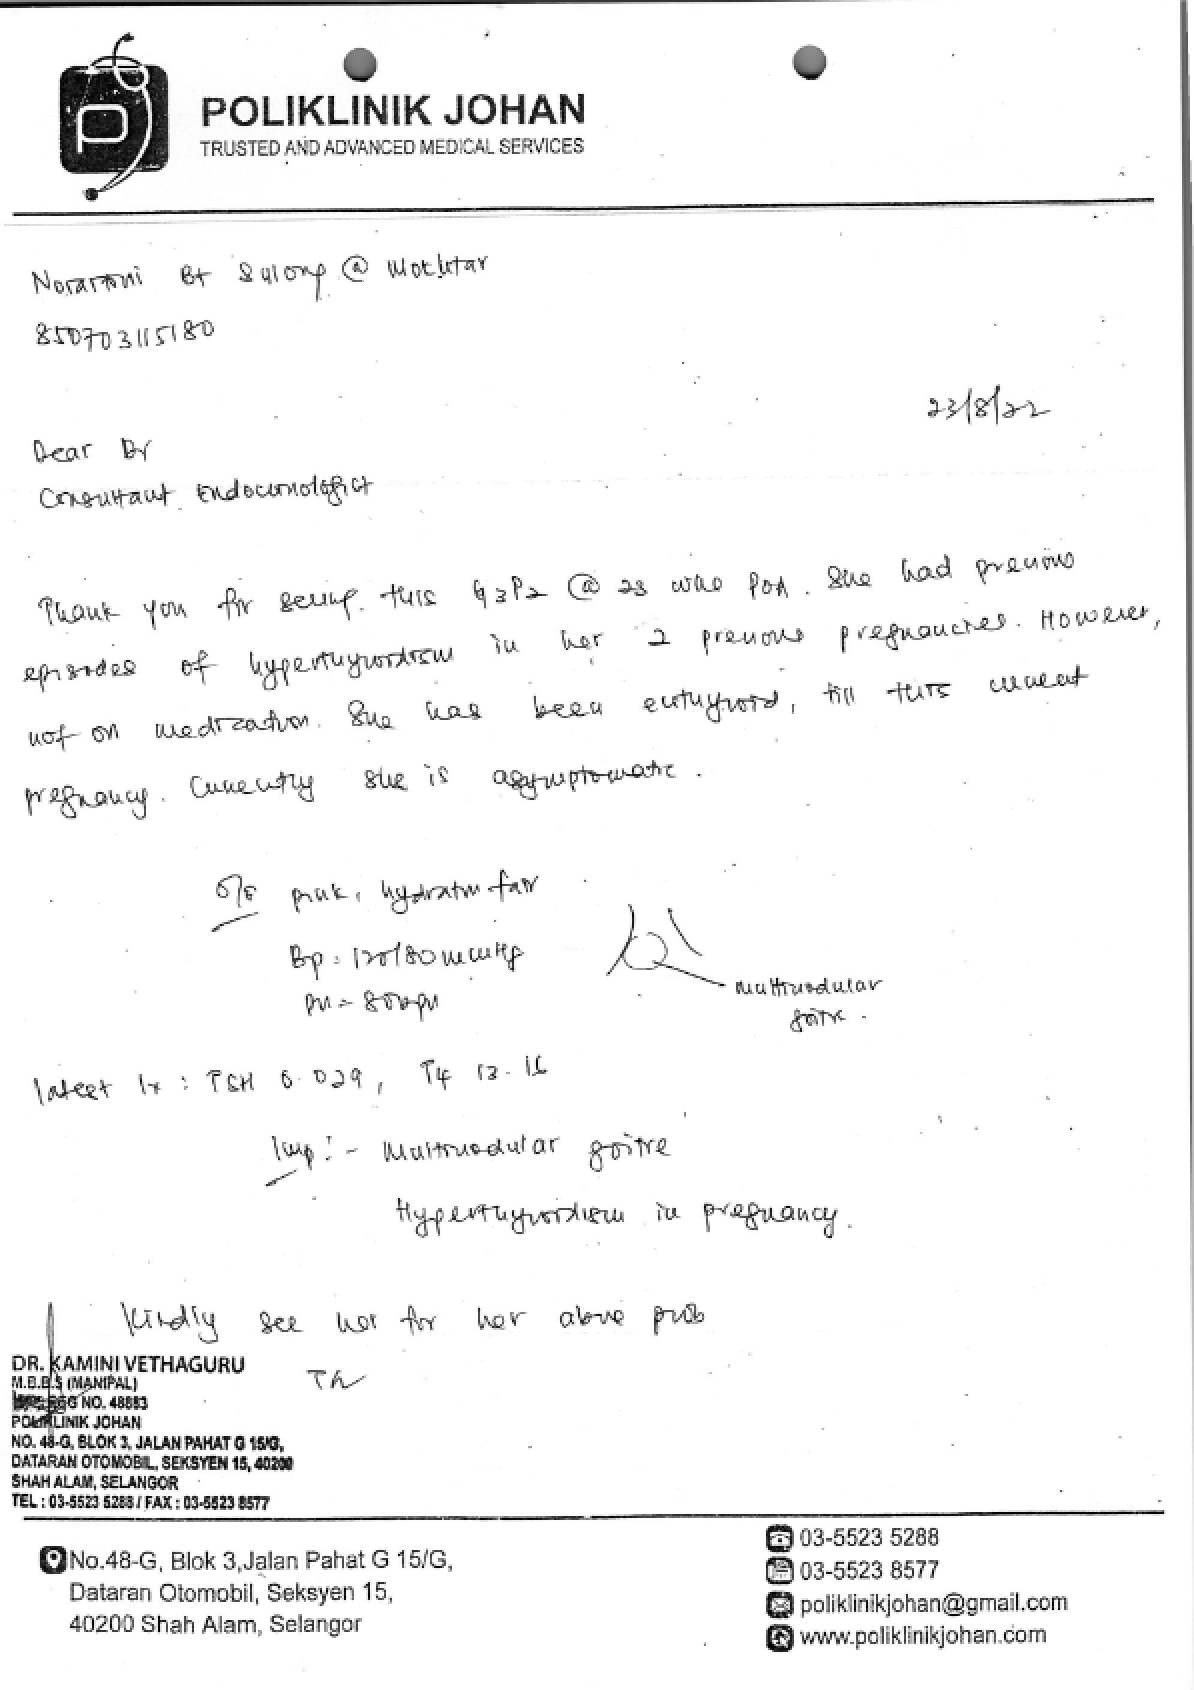 POLIKLINIK JOHAN
TRUSTED AND ADVANCED MEDICAL SERVICES
Bt Sulong @ Mokhtar
850703115180
23/8/22
Dear Dr
Consultant Endocrinologist
Thank you for seeing this G3P2 @ 23 wks POA. She had previous
episodes of hyperthyroidism in her 2 previous pregnancies. However,
not on medication. She has been euthyroid, till this current
pregnancy. Currently she is asymptomatic.
O/E pink, hydration fair
Bp = 120/80 mmHg
PR = 80 bpm
multinodular
goitre.
latest Ix : TSH 0.029, T4 13.16
Imp: - Multinodular goitre
Hyperthyroidism in pregnancy.
Kindly see her for her above prob
DR. KAMINI VETHAGURU
M.B.B.S (MANIPAL)
NO. 48883
POLIKLINIK JOHAN
NO. 48-G, BLOK 3, JALAN PAHAT G 15/G,
DATARAN OTOMOBIL, SEKSYEN 15, 40200
SHAH ALAM, SELANGOR
TEL : 03-5523 5288 / FAX : 03-5523 8577
No.48-G, Blok 3,Jalan Pahat G 15/G,
Dataran Otomobil, Seksyen 15,
40200 Shah Alam, Selangor
03-5523 5288
03-5523 8577
poliklinikjohan@gmail.com
www.poliklinikjohan.com